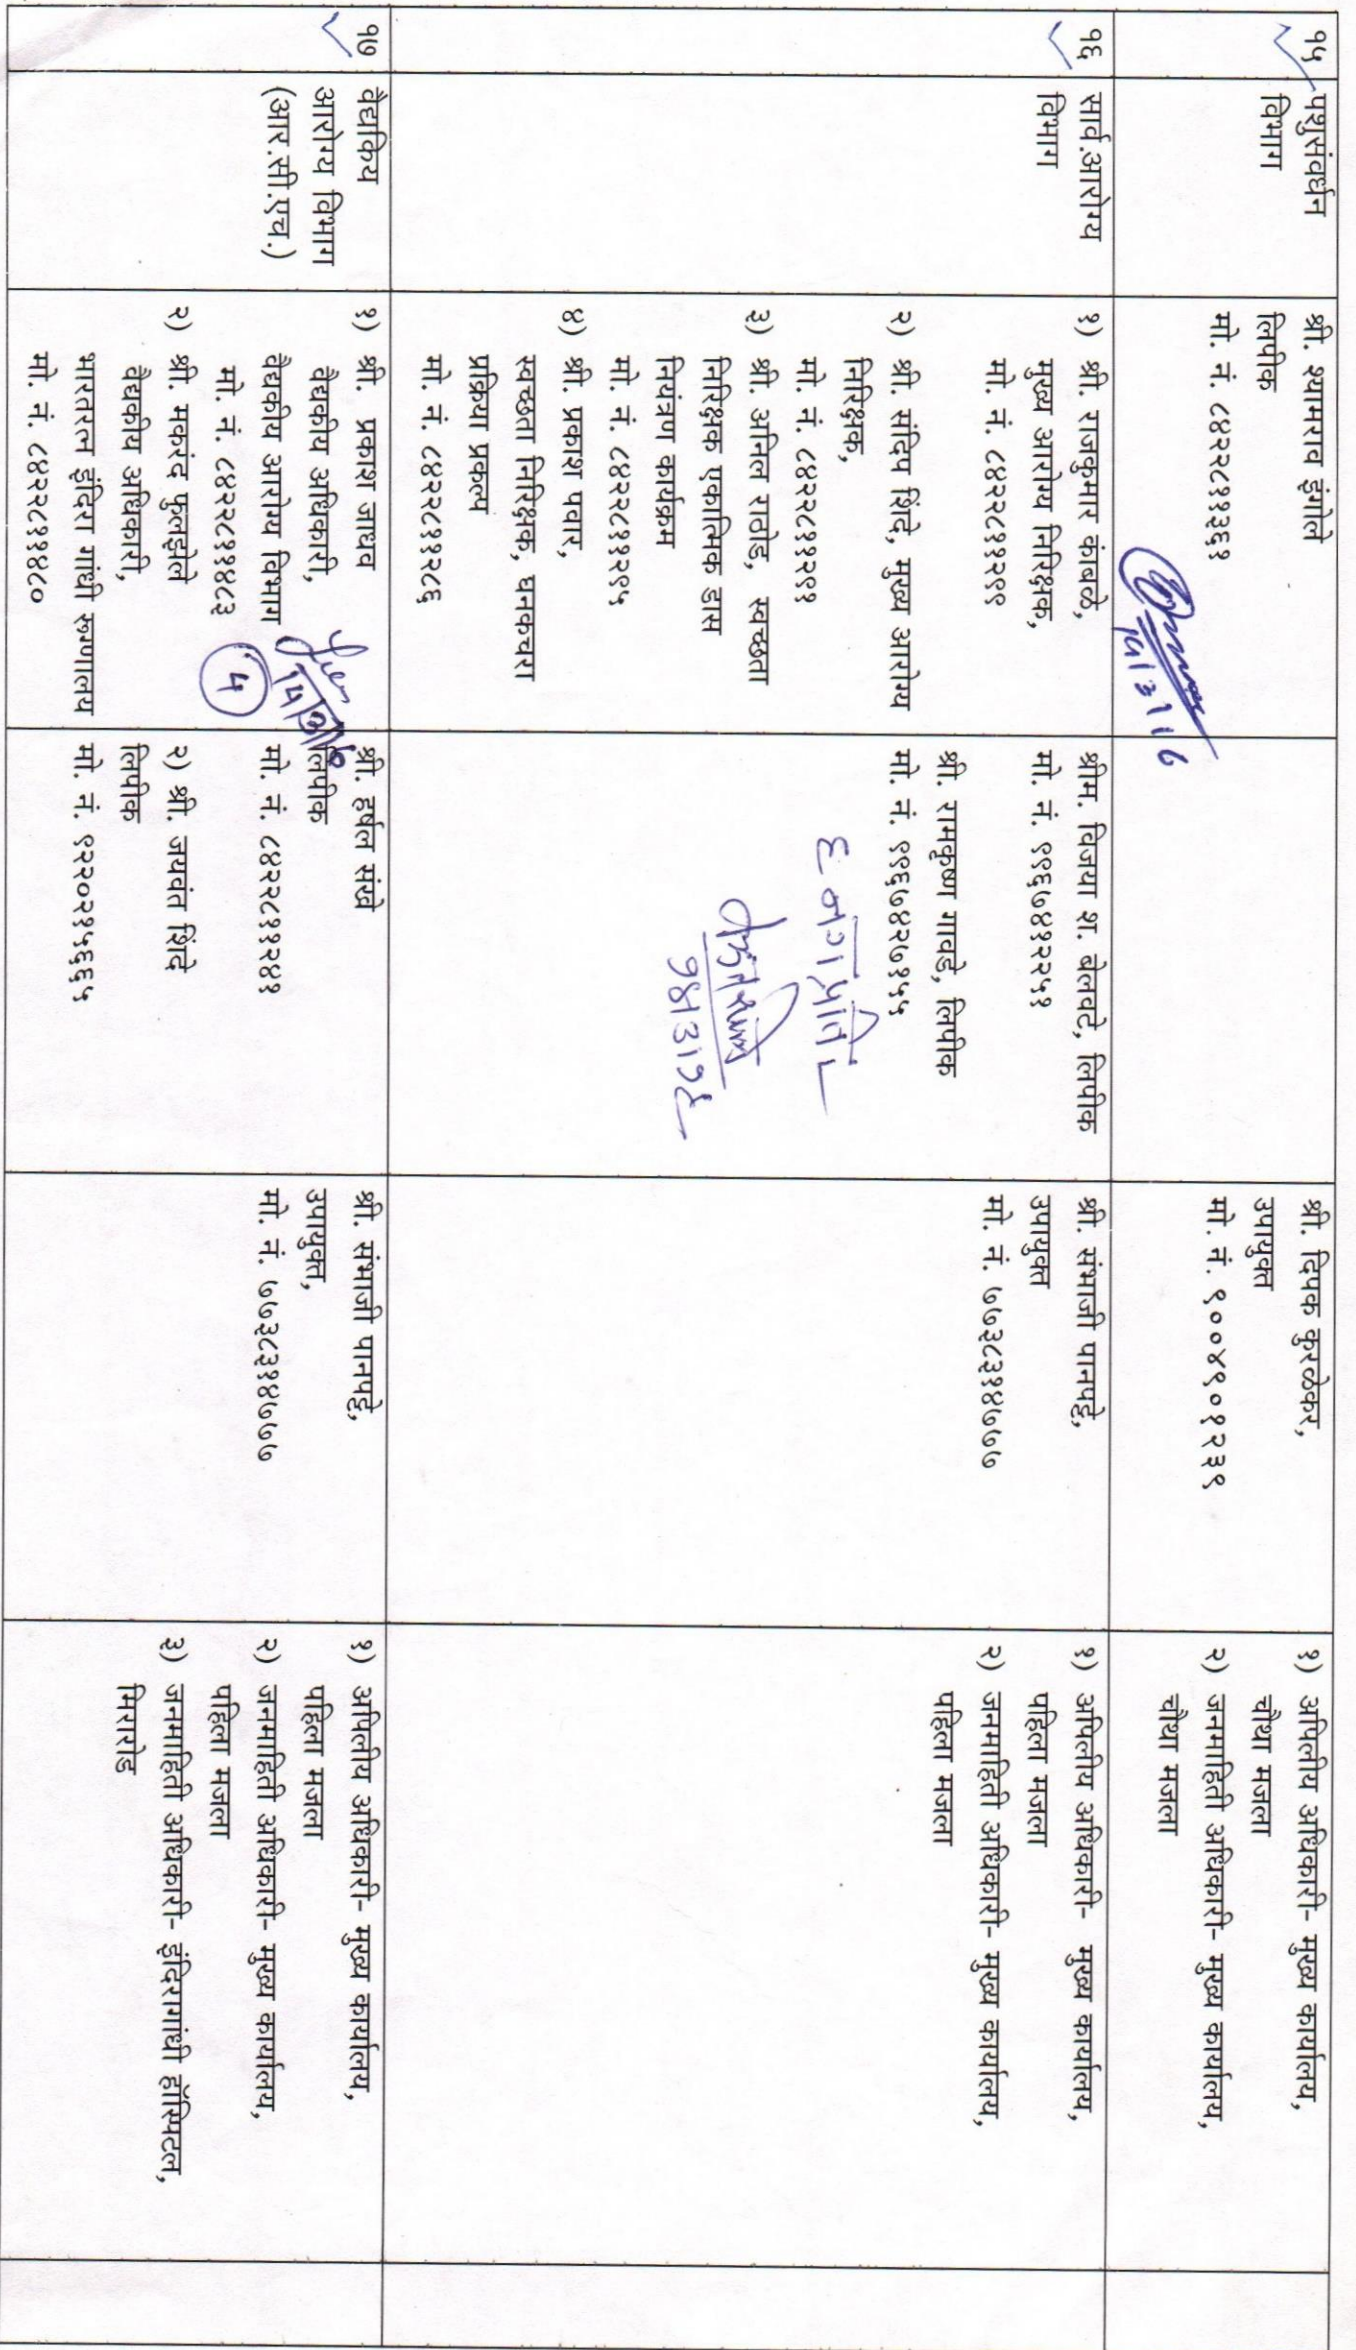 १५
पशुसंवर्धन
विभाग
श्री. श्यामराव इंगोले
लिपीक
मो. नं. ८४२२८११३६१
१५/३/१६
श्री. दिपक कुरळेकर,
उपायुक्त
मो. नं. ९००४९०१२३९
१) अपिलीय अधिकारी- मुख्य कार्यालय,
चौथा मजला
२) जनमाहिती अधिकारी- मुख्य कार्यालय,
चौथा मजला
१६
सार्व.आरोग्य
विभाग
१) श्री. राजकुमार कांबळे,
मुख्य आरोग्य निरिक्षक,
मो. नं. ८४२२८११२९९
२) श्री. संदिप शिंदे, मुख्य आरोग्य
निरिक्षक,
मो. नं. ८४२२८११२९१
३) श्री. अनिल राठोड, स्वच्छता
निरिक्षक एकात्मिक डास
नियंत्रण कार्यक्रम
मो. नं. ८४२२८११२९५
४) श्री. प्रकाश पवार,
स्वच्छता निरिक्षक, घनकचरा
प्रक्रिया प्रकल्प
मो. नं. ८४२२८११२८६
श्रीम. विजया श्र. बेलवटे, लिपीक
मो. नं. ९९६७४१२२५१
श्री. रामकृष्ण गावडे, लिपीक
मो. नं. ९९६७४२७१५५
श्री. संभाजी पानपट्टे,
उपायुक्त
मो. नं. ७७३८३१४७७७
१) अपिलीय अधिकारी- मुख्य कार्यालय,
पहिला मजला
२) जनमाहिती अधिकारी- मुख्य कार्यालय,
पहिला मजला
१७
वैद्यकिय
आरोग्य विभाग
(आर.सी.एच.)
१) श्री. प्रकाश जाधव
वैद्यकीय अधिकारी,
वैद्यकीय आरोग्य विभाग
मो. नं. ८४२२८११४८३
२) श्री. मकरंद फुलझेले
वैद्यकीय अधिकारी,
भारतरत्न इंदिरा गांधी रुग्णालय
मो. नं. ८४२२८११४८०
५
श्री. हर्षल संखे
लिपीक
मो. नं. ८४२२८११२४१
२) श्री. जयवंत शिंदे
लिपीक
मो. नं. ९२२०२१५६६५
श्री. संभाजी पानपट्टे,
उपायुक्त,
मो. नं. ७७३८३१४७७७
१) अपिलीय अधिकारी- मुख्य कार्यालय,
पहिला मजला
२) जनमाहिती अधिकारी- मुख्य कार्यालय,
पहिला मजला
३) जनमाहिती अधिकारी- इंदिरागांधी हॉस्पिटल,
मिरारोड